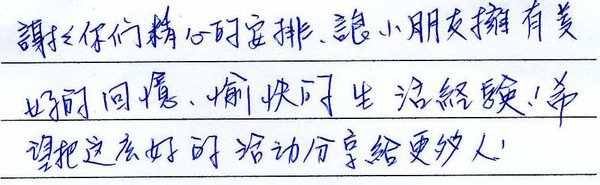 謝謝你们精心的安排、讓小朋友擁有美
好的回憶、愉快的生活經驗!希
望把这么好的活动分享給更多人!